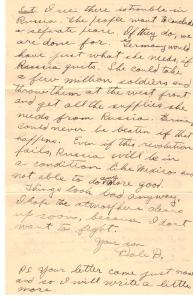 Sat. I see there is trouble in
Russia. The people want to conclude
a separate peace. If they do, we
are done for. Germany would
have just what she needs, if
Russia quits. She could take
a few million soldiers and
throw them at the west front
and get all the supplies she
needs from Russia. Germany
could never be beaten if this
happens. Even if this revolution
fails, Russia will be in
a condition like Mexico and
not able to do any more good.
Things look bad anyway.
I hope the atmosphere clears
up soon, because I don't
want to fight.
Your son
Dale D.
P.S. Your letter came just now
and so I will write a little
more